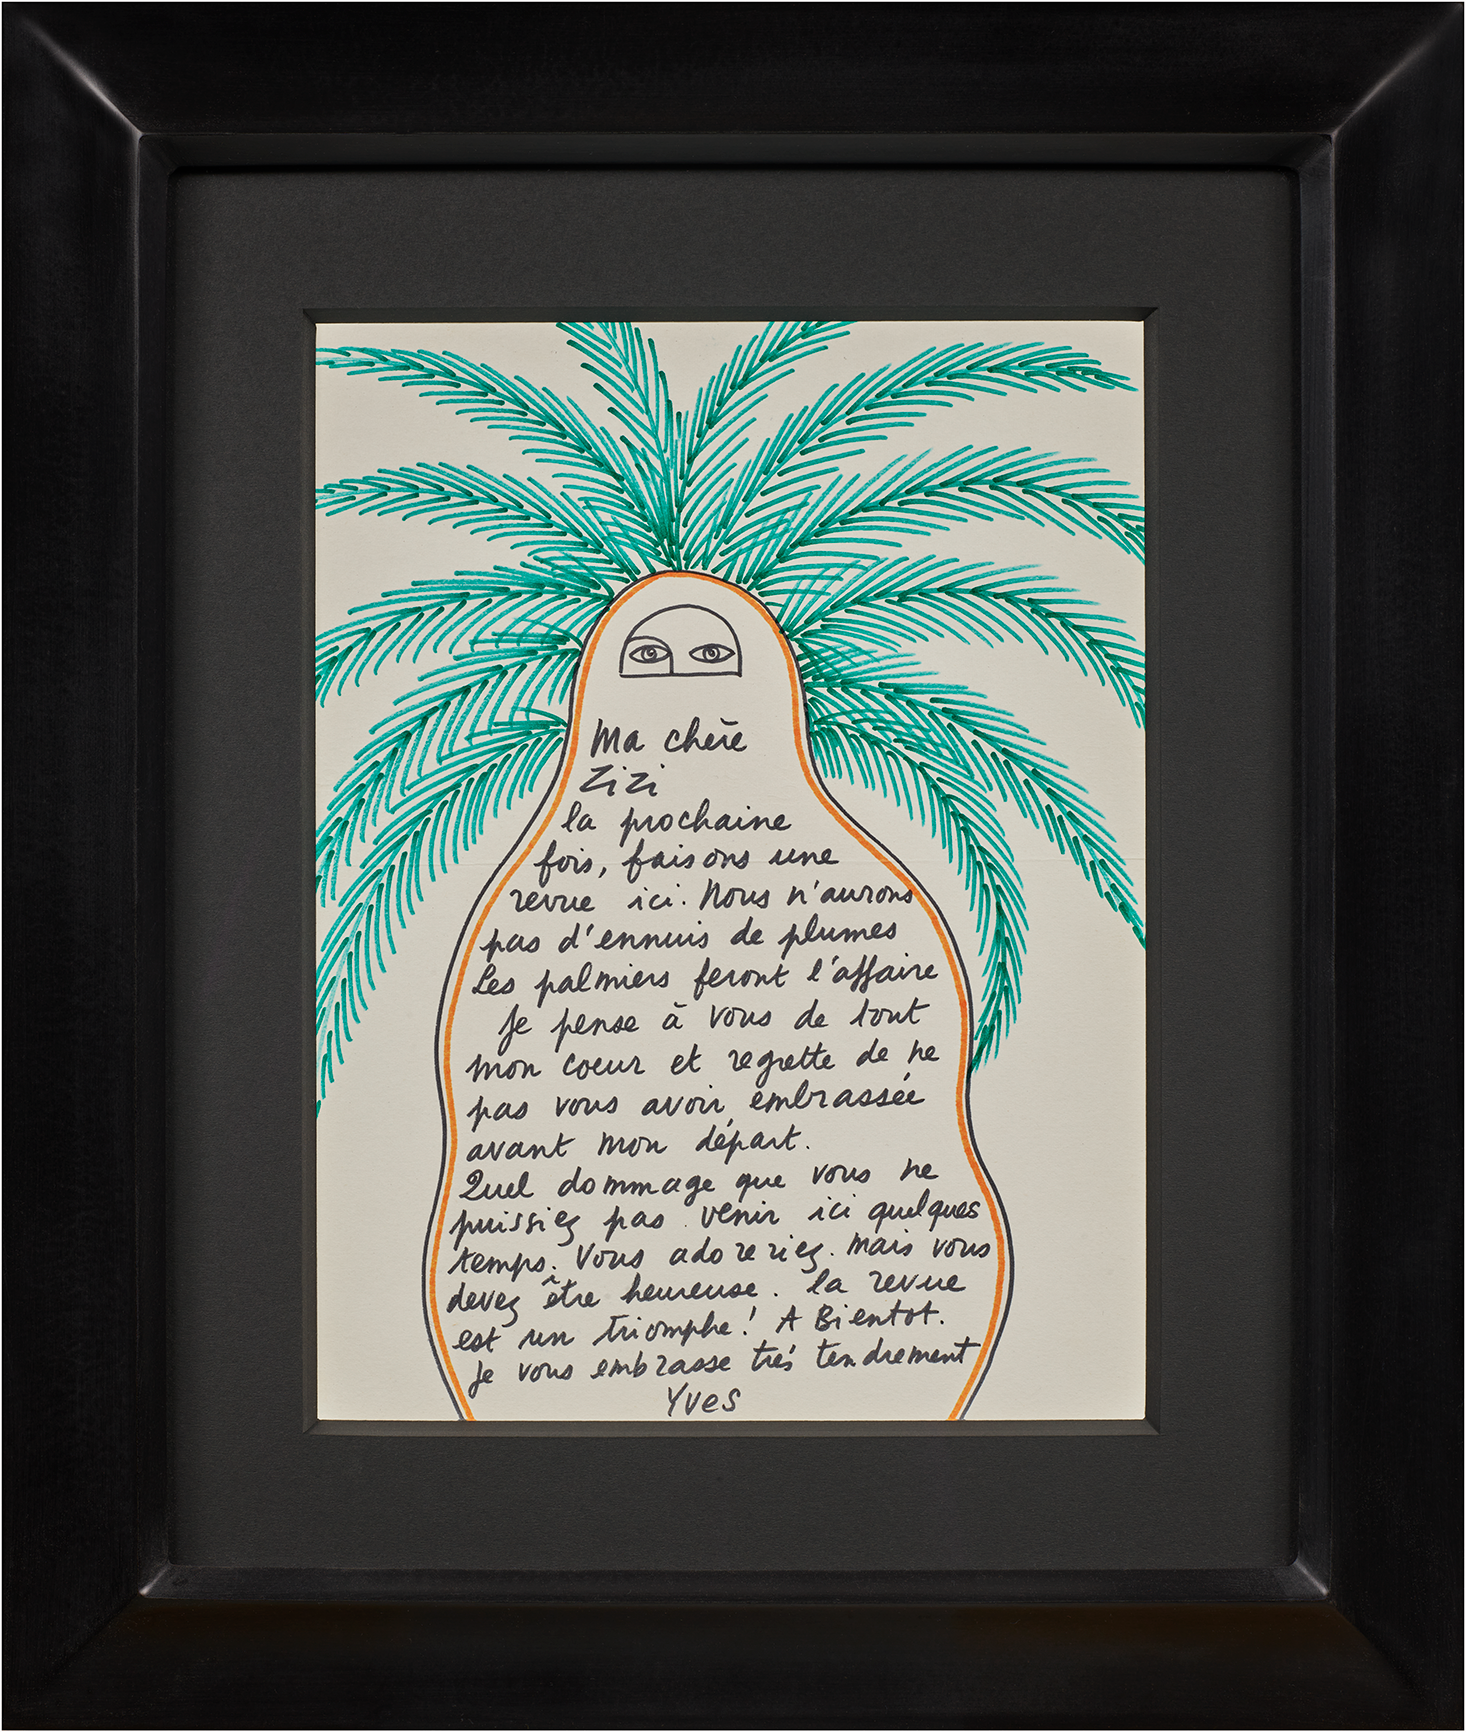 Ma chère
Zizi
la prochaine
fois, faisons une
revue ici. Nous n'aurons
pas d'ennuis de plumes
Les palmiers feront l'affaire
Je pense à vous de tout
mon coeur et regrette de ne
pas vous avoir embrassée
avant mon départ.
Quel dommage que vous ne
puissiez pas venir ici quelques
temps. Vous adoreriez. Mais vous
devez être heureuse. la revue
est un triomphe! A Bientot.
Je vous embrasse très tendrement
Yves